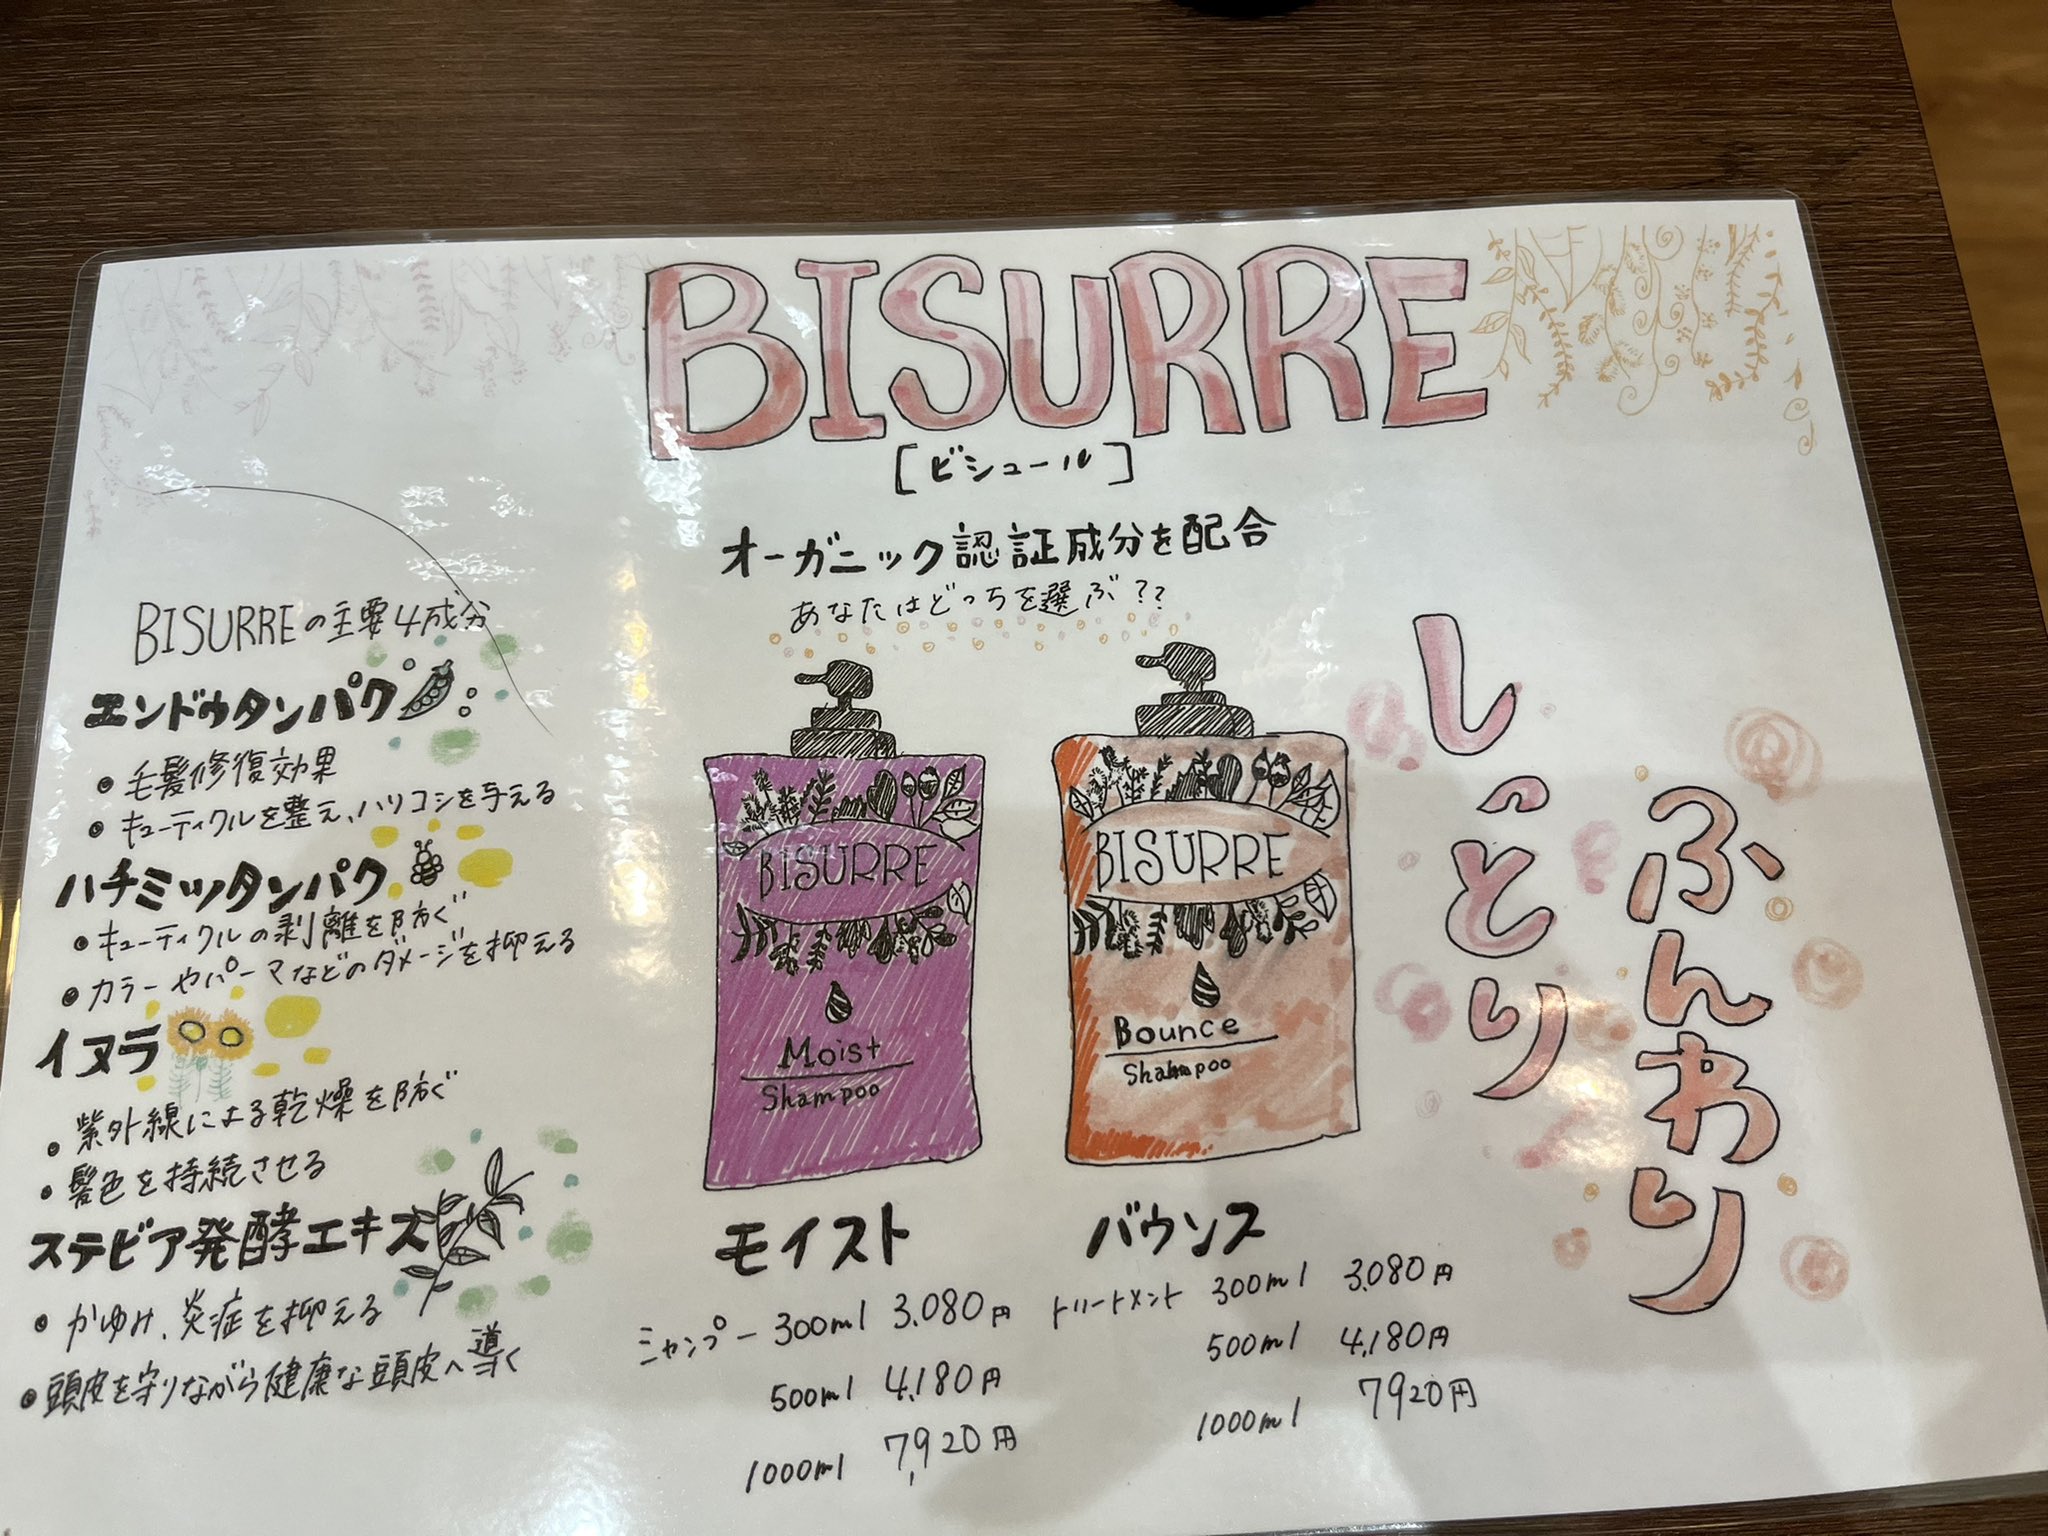 BISURRE
[ビシュール]
オーガニック認証成分を配合
あなたはどっちを選ぶ??
BISURREの主要4成分
エンドウタンパク
• 毛髪修復効果
• キューティクルを整え、ハリコシを与える
ハチミツタンパク
• キューティクルの剥離を防ぐ
• カラーやパーマなどのダメージを抑える
イヌラ
• 紫外線による乾燥を防ぐ
• 髪色を持続させる
ステビア発酵エキス
• かゆみ、炎症を抑える
• 頭皮を守りながら健康な頭皮へ導く
BISURRE
Moist
Shampoo
BISURRE
Bounce
Shampoo
しっとり
ふんわり
モイスト
バウンス
シャンプー 300ml 3,080円
500ml 4,180円
1000ml 7,920円
トリートメント 300ml 3,080円
500ml 4,180円
1000ml 7920円